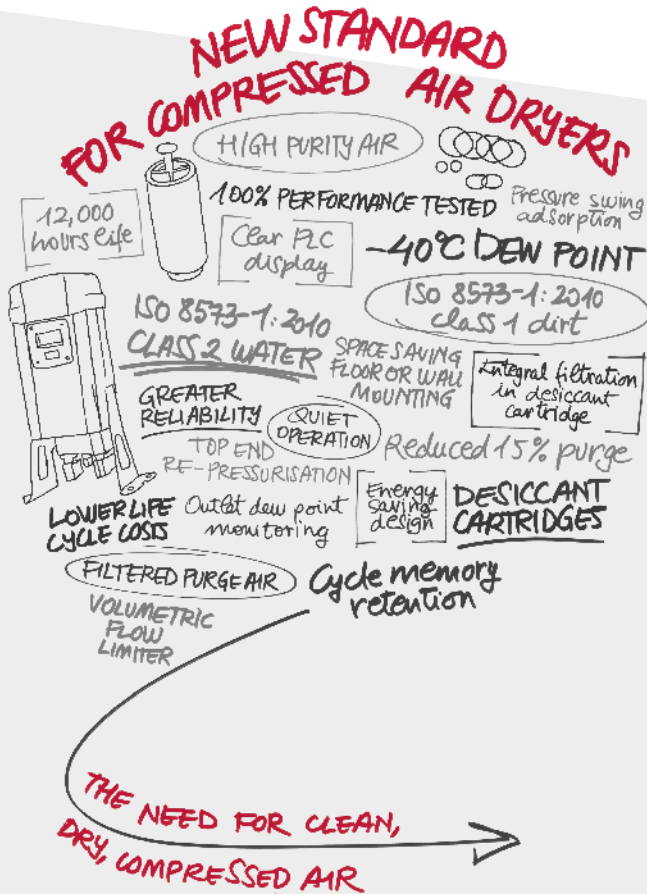 NEW STANDARD
FOR COMPRESSED AIR DRYERS
HIGH PURITY AIR
100% PERFORMANCE TESTED
Pressure swing
adsorption
12,000
hours life
Clear PLC
display
-40°C DEW POINT
ISO 8573-1:2010
CLASS 2 WATER
ISO 8573-1:2010
class 1 dirt
SPACE SAVING
FLOOR OR WALL
MOUNTING
Integral filtration
in desiccant
cartridge
GREATER
RELIABILITY
QUIET
OPERATION
TOP END
RE-PRESSURISATION
Reduced 15% purge
LOWER LIFE
CYCLE COSTS
Outlet dew point
monitoring
Energy
saving
design
DESICCANT
CARTRIDGES
FILTERED PURGE AIR
Cycle memory
retention
VOLUMETRIC
FLOW
LIMITER
THE NEED FOR CLEAN,
DRY, COMPRESSED AIR